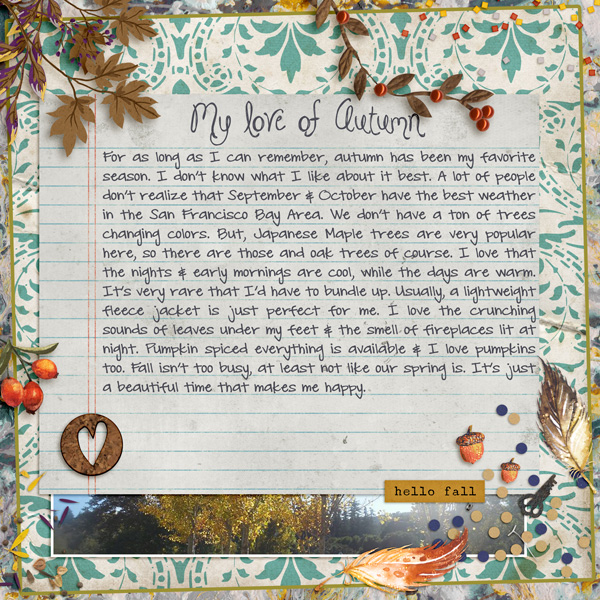 My love of Autumn
For as long as I can remember, autumn has been my favorite
season. I don't know what I like about it best. A lot of people
don't realize that September & October have the best weather
in the San Francisco Bay Area. We don't have a ton of trees
changing colors. But, Japanese Maple trees are very popular
here, so there are those and oak trees of course. I love that
the nights & early mornings are cool, while the days are warm.
It's very rare that I'd have to bundle up. Usually, a lightweight
fleece jacket is just perfect for me. I love the crunching
sounds of leaves under my feet & the smell of fireplaces lit at
night. Pumpkin spiced everything is available & I love pumpkins
too. Fall isn't too busy, at least not like our spring is. It's just
a beautiful time that makes me happy.
hello fall